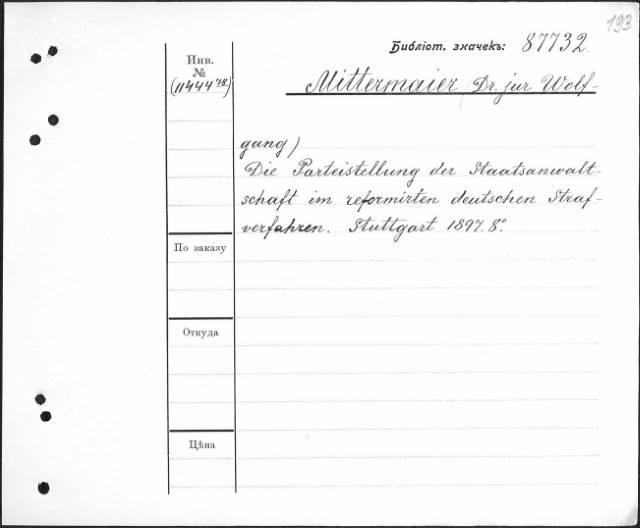 193
Библіот. значекъ: 87732.
Инв.
№
Mittermaier (Dr. jur Wolf-
gang)
Die Parteistellung der Staatsanwalt-
schaft im reformirten deutschen Straf-
verfahren. Stuttgart 1897. 8°
По заказу
Откуда
Цѣна